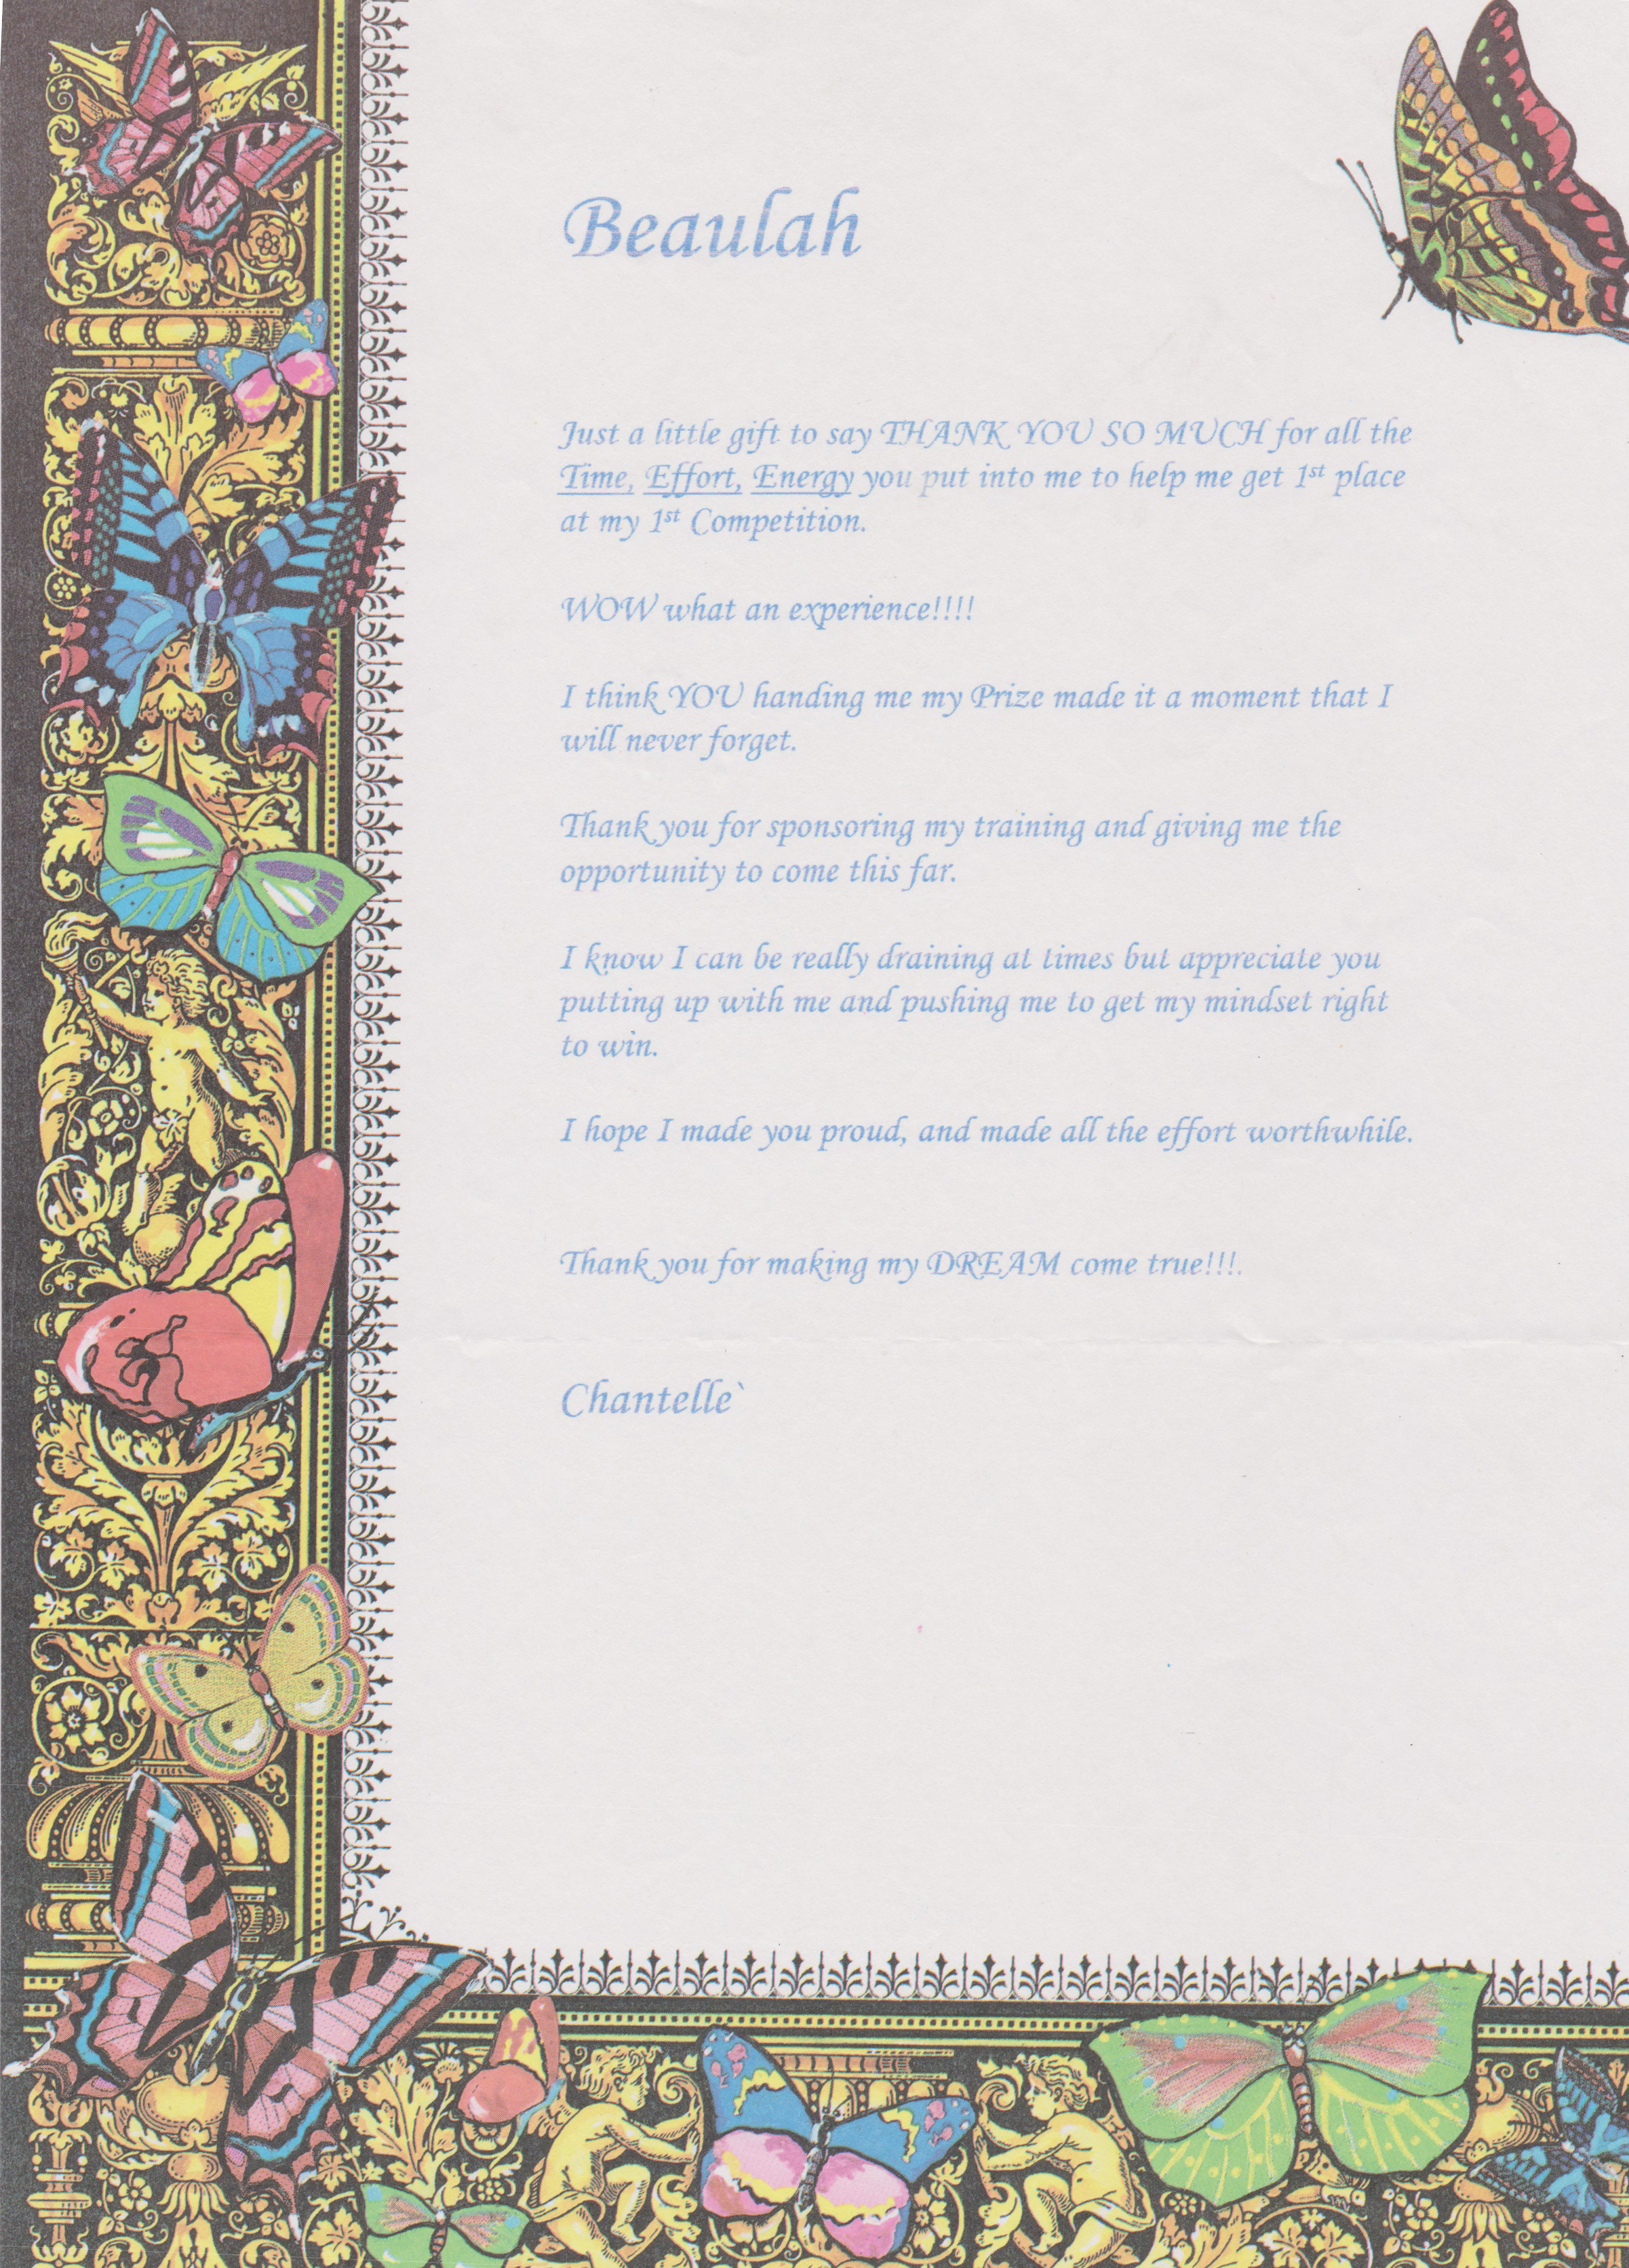 Beaulah
Just a little gift to say THANK YOU SO MUCH for all the
Time, Effort, Energy you put into me to help me get 1st place
at my 1st Competition.
WOW what an experience!!!!
I think YOU handing me my Prize made it a moment that I
will never forget.
Thank you for sponsoring my training and giving me the
opportunity to come this far.
I know I can be really draining at times but appreciate you
putting up with me and pushing me to get my mindset right
to win.
I hope I made you proud, and made all the effort worthwhile.
Thank you for making my DREAM come true!!!.
Chantelle`